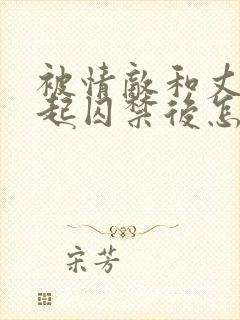 被情敵和丈
起囚禁後怎
宋芳